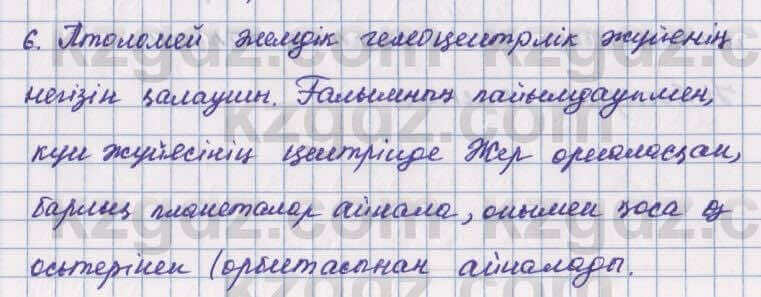 6. Птоломей әлемдік гелиоцентрлік жүйенің
негізін қалаушы. Ғалымның пайымдауымен,
күн жүйесінің центрінде Жер орналасқан,
барлық планеталар айнала, онымен қоса өз
осьтерінен (орбитасынан айналады.